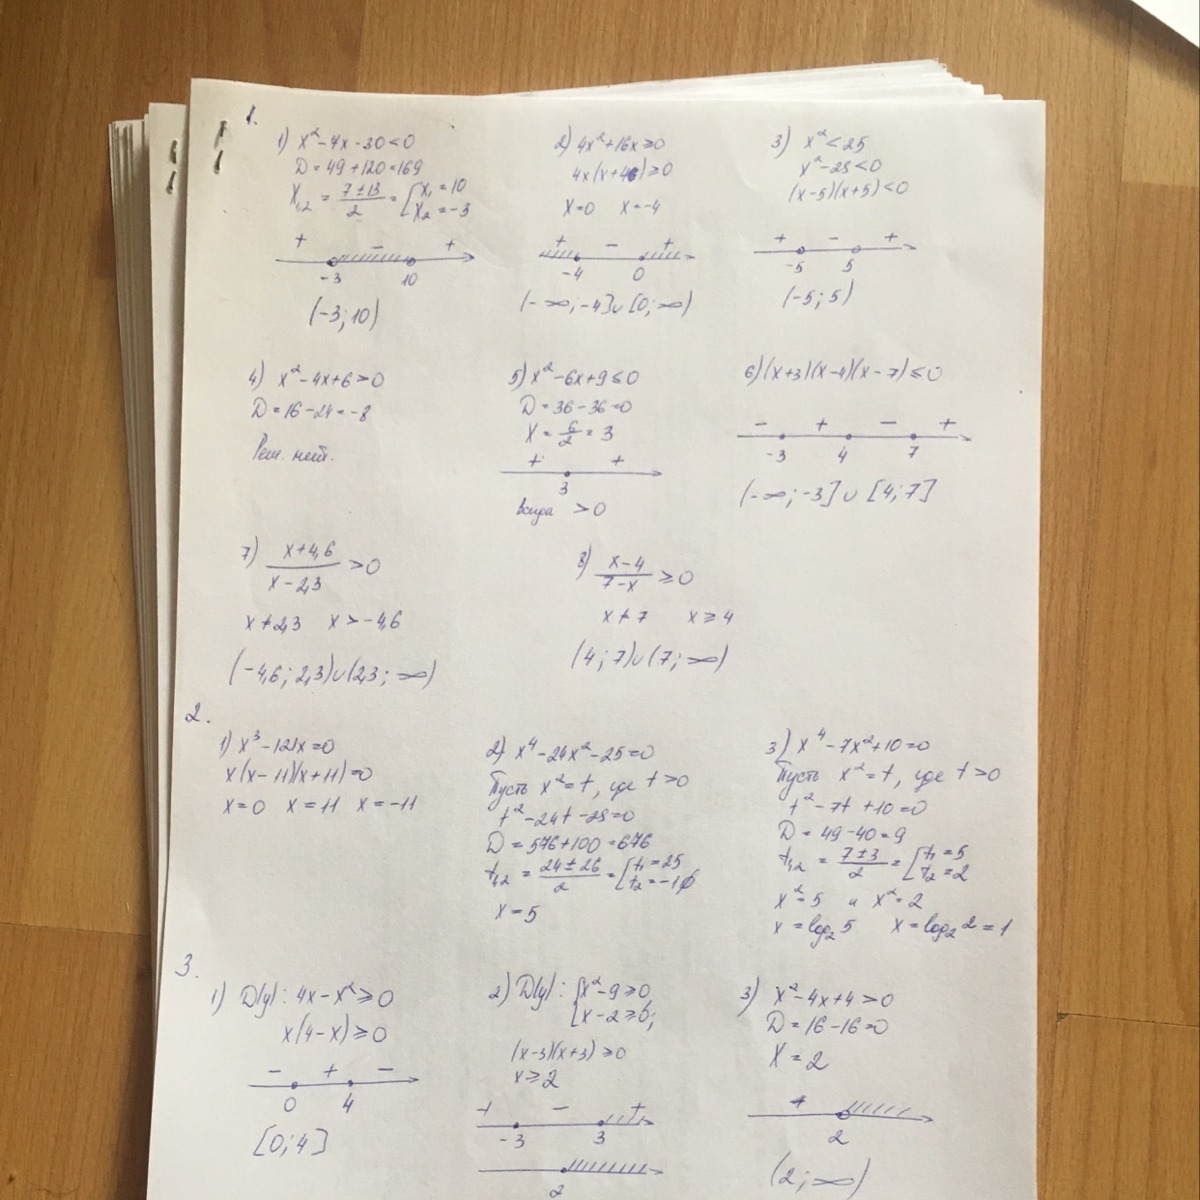 1.
1) x² - 7x - 30 < 0
D = 49 + 120 = 169
x₁,₂ = (7 ± 13)/2 = [x₁ = 10
x₂ = -3
+ - +
-3 10
(-3; 10)
2) 4x² + 16x ≥ 0
4x(x + 4) ≥ 0
x = 0 x = -4
+ - +
-4 0
(-∞; -4] ∪ [0; ∞)
3) x² < 25
x² - 25 < 0
(x - 5)(x + 5) < 0
+ - +
-5 5
(-5; 5)
4) x² - 4x + 6 > 0
D = 16 - 24 = -8
Реш. нет.
5) x² - 6x + 9 ≤ 0
D = 36 - 36 = 0
x = 6/2 = 3
+ +
3
всегда > 0
6) (x + 3)(x - 4)(x - 7) ≤ 0
- + - +
-3 4 7
(-∞; -3] ∪ [4; 7]
7) (x + 4,6)/(x - 2,3) > 0
x ≠ 2,3 x > -4,6
(-4,6; 2,3) ∪ (2,3; ∞)
8) (x - 4)/(7 - x) ≥ 0
x ≠ 7 x ≥ 4
(4; 7) ∪ (7; ∞)
2.
1) x³ - 121x = 0
x(x - 11)(x + 11) = 0
x = 0 x = 11 x = -11
2) x⁴ - 24x² - 25 = 0
Пусть x² = t, где t > 0
t² - 24t - 25 = 0
D = 576 + 100 = 676
t₁,₂ = (24 ± 26)/2 = [t₁ = 25
t₂ = -1 ∅
x = 5
3) x⁴ - 7x² + 10 = 0
Пусть x² = t, где t > 0
t² - 7t + 10 = 0
D = 49 - 40 = 9
t₁,₂ = (7 ± 3)/2 = [t₁ = 5
t₂ = 2
x² = 5 и x² = 2
x = log₂ 5 x = log₂ 2 = 1
3.
1) D(y): 4x - x² ≥ 0
x(4 - x) ≥ 0
- + -
0 4
[0; 4]
2) D(y): {x² - 9 ≥ 0
x - 2 ≥ 0;
(x - 3)(x + 3) ≥ 0
x ≥ 2
+ - +
-3 3
2
3) x² - 4x + 4 > 0
D = 16 - 16 = 0
x = 2
+
2
(2; ∞)